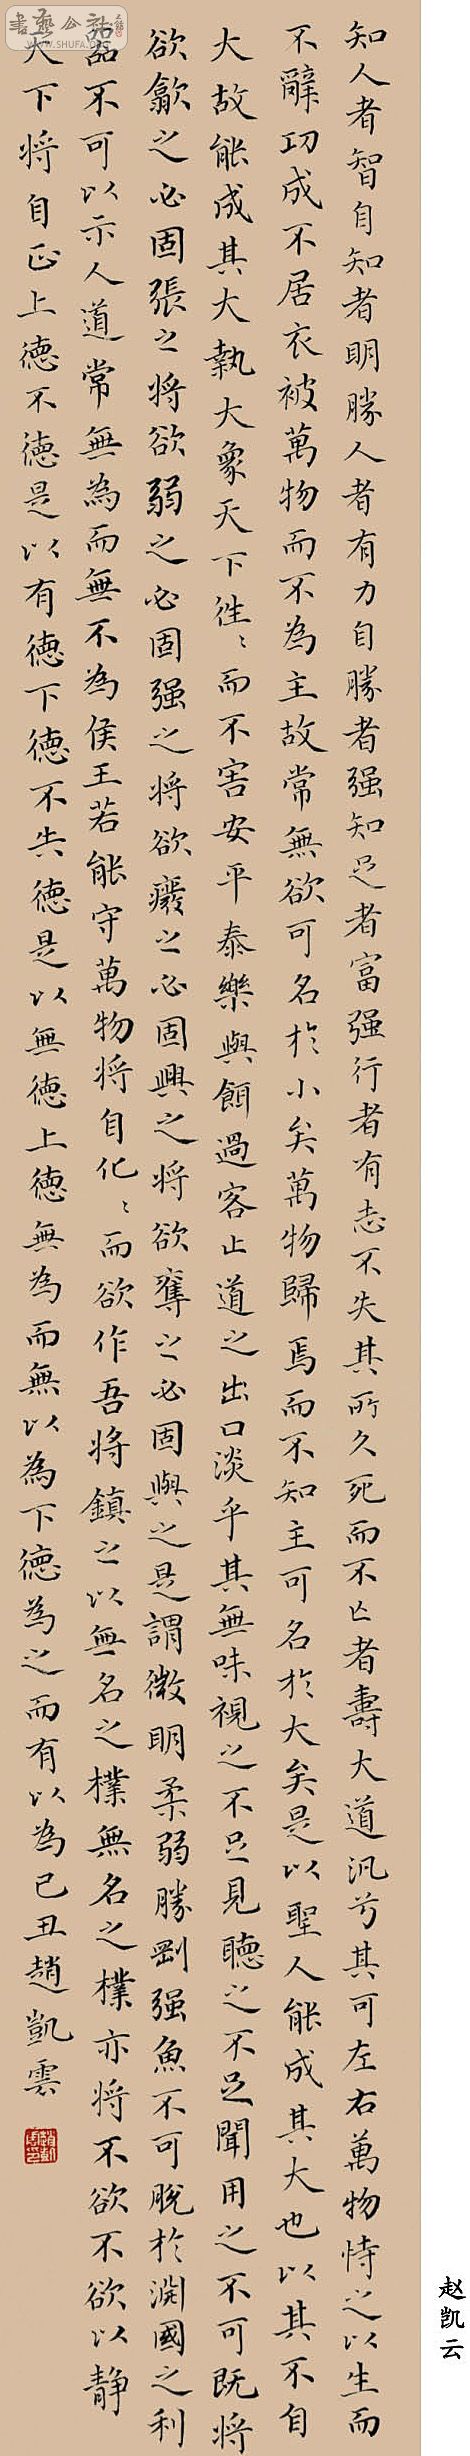 知人者智自知者明勝人者有力自勝者强知足者富强行者有志不失其所久死而不亡者壽大道汎兮其可左右萬物恃之以生而
不辭功成不居衣被萬物而不為主故常無欲可名於小矣萬物歸焉而不知主可名於大矣是以聖人能成其大也以其不自
大故能成其大執大象天下往〻而不害安平泰樂與餌過客止道之出口淡乎其無味視之不足見聽之不足聞用之不可既将
欲歙之必固張之将欲弱之必固强之将欲癈之必固興之将欲奪之必固與之是謂微明柔弱勝剛强魚不可脱於淵國之利
器不可以示人道常無為而無不為侯王若能守萬物将自化〻而欲作吾将鎮之以無名之樸無名之樸亦将不欲不欲以静
天下将自正上德不德是以有德下德不失德是以無德上德無為而無以為下德為之而有以為己丑趙凱雲
赵凯云
書藝公社